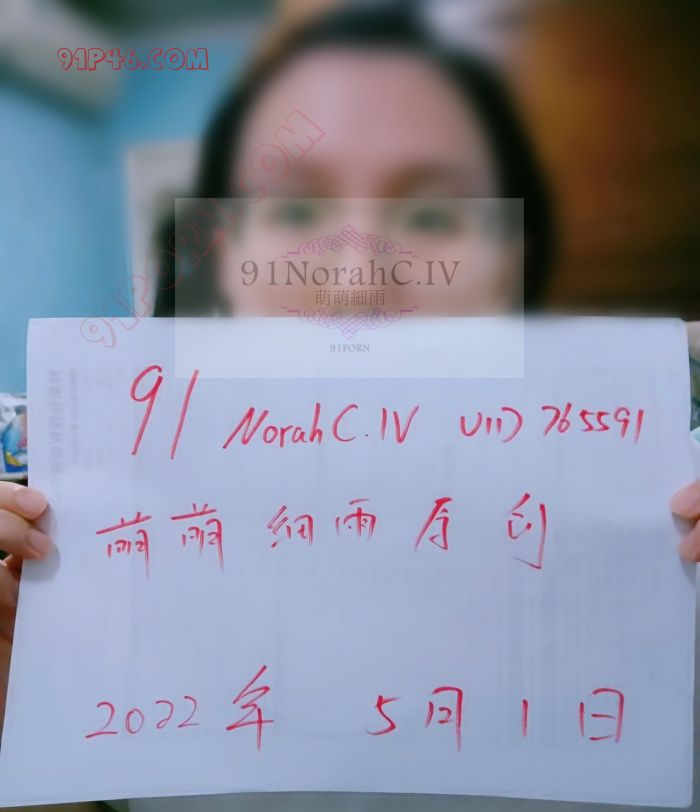 91P46.COM
91PORN.COM
91NorahC.IV
萌萌細雨
91PORN
91 NorahC.IV UID 765591
萌萌细雨原创
2022年 5月1日